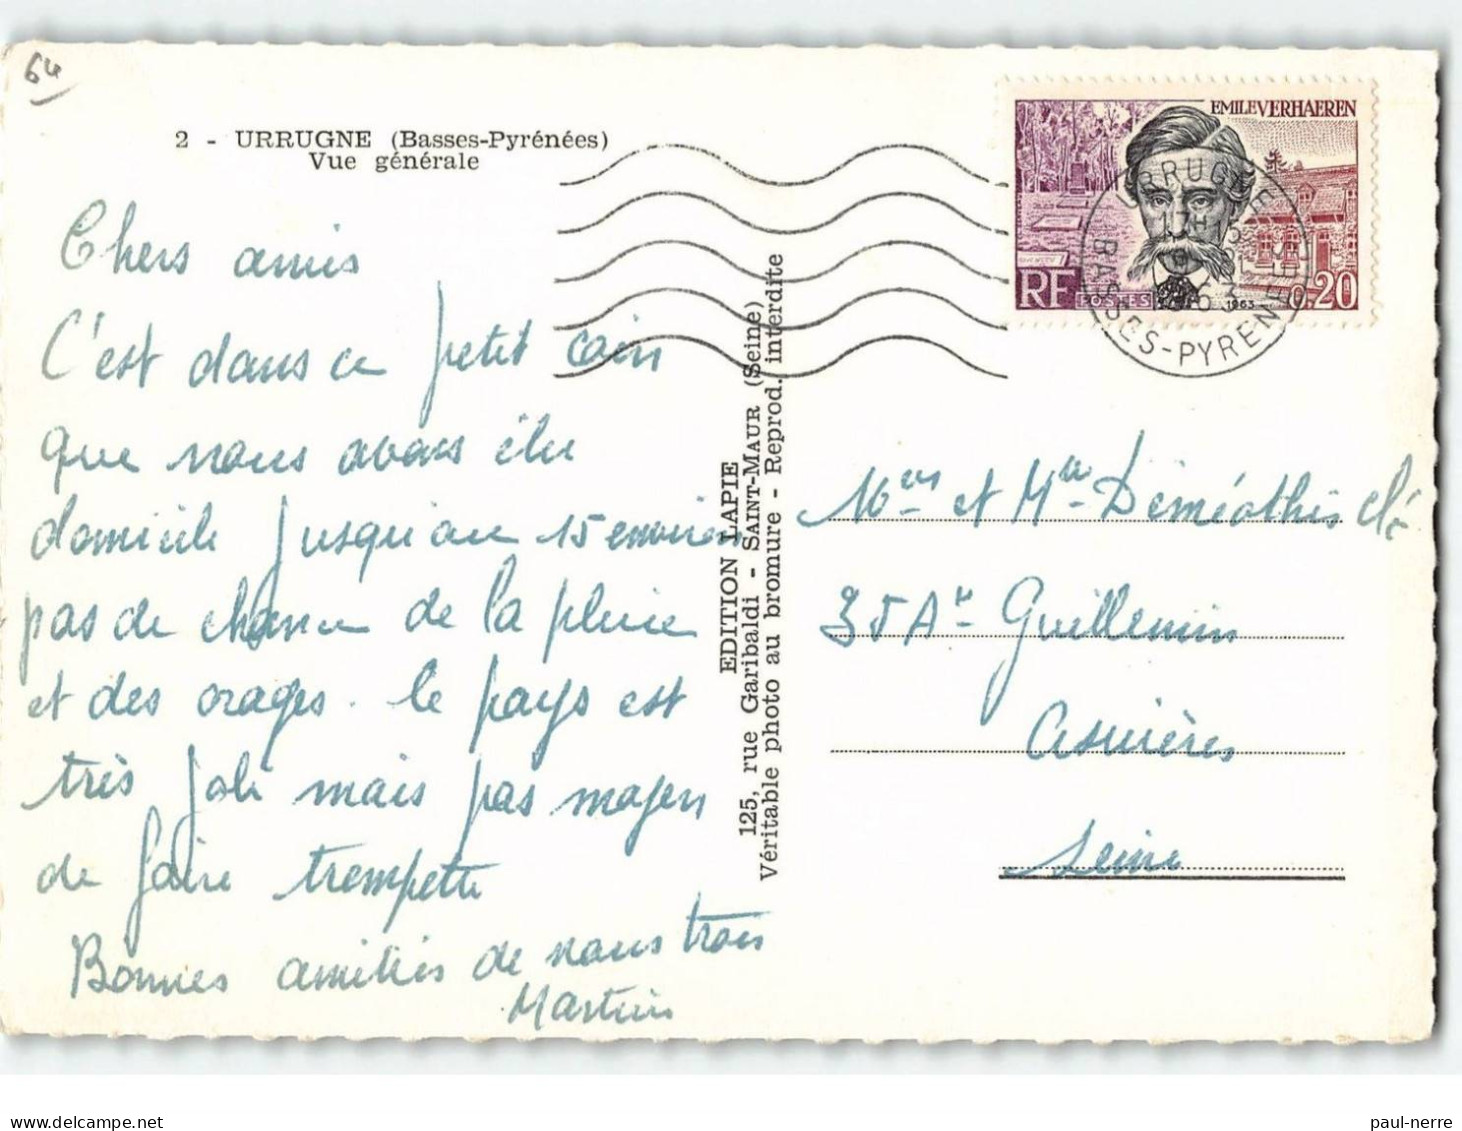 64
2 - URRUGNE (Basses-Pyrénées)
Vue générale
Chers amis
C'est dans ce petit coin
que nous avons élu
domicile jusqu'au 15 environ
pas de chance de la pluie
et des orages. le pays est
très joli mais pas moyen
de faire trempette
Bonnes amitiés de nous trois
Martin
EDITION LAPIE
125, rue Garibaldi - SAINT-MAUR (Seine)
Véritable photo au bromure - Reprod. interdite
EMILE VERHAEREN
RF POSTES 1963 0,20
URRUGNE
17H15
1963
BASSES-PYRENEES
et Déméothis
35 Av Guillemin
Asnières
Seine
paul-nerre